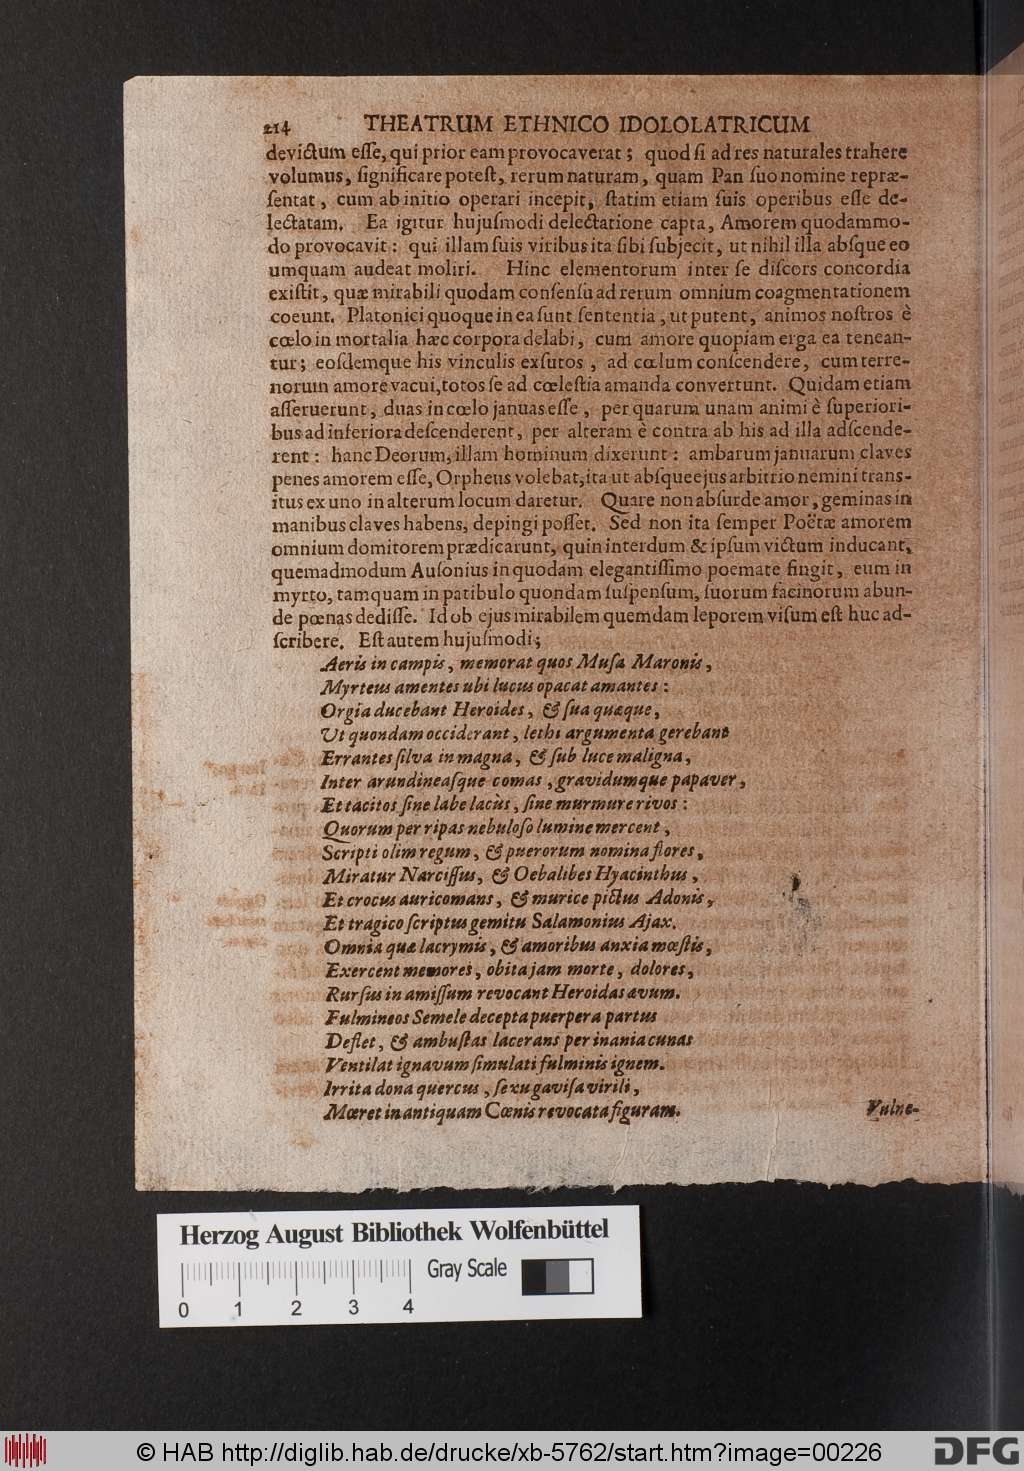 214 THEATRUM ETHNICO IDOLOLATRICUM
devictum eſſe, qui prior eam provocaverat; quod ſi ad res naturales trahere
volumus, ſignificare poteſt, rerum naturam, quam Pan ſuo nomine repræ-
ſentat, cum ab initio operari incepit, ſtatim etiam ſuis operibus eſſe de-
lectatam. Ea igitur hujuſmodi delectatione capta, Amorem quodammo-
do provocavit: qui illam ſuis viribus ita ſibi ſubjecit, ut nihil illa abſque eo
umquam audeat moliri. Hinc elementorum inter ſe diſcors concordia
exiſtit, quæ mirabili quodam conſenſu ad rerum omnium coagmentationem
coeunt. Platonici quoque in ea ſunt ſententia, ut putent, animos noſtros è
cœlo in mortalia hæc corpora delabi, cum amore quopiam erga ea tenean-
tur; eoſdemque his vinculis exſutos, ad cœlum conſcendere, cum terre-
norum amore vacui, totos ſe ad cœleſtia amanda convertunt. Quidam etiam
aſſeruerunt, duas in cœlo januas eſſe, per quarum unam animi è ſuperiori-
bus ad inferiora deſcenderent, per alteram è contra ab his ad illa adſcende-
rent: hanc Deorum, illam hominum dixerunt: ambarum januarum claves
penes amorem eſſe, Orpheus volebat, ita ut abſque ejus arbitrio nemini trans-
itus ex uno in alterum locum daretur. Quare non abſurde amor, geminas in
manibus claves habens, depingi poſſet. Sed non ita ſemper Poëtæ amorem
omnium domitorem prædicarunt, quin interdum & ipſum victum inducant,
quemadmodum Auſonius in quodam elegantiſſimo poemate fingit, eum in
myrto, tamquam in patibulo quondam ſuſpenſum, ſuorum facinorum abun-
de pœnas dediſſe. Id ob ejus mirabilem quemdam leporem viſum eſt huc ad-
ſcribere. Eſt autem hujuſmodi;
Aeris in campis, memorat quos Muſa Maronis,
Myrteus amentes ubi lucus opacat amantes:
Orgia ducebant Heroides, & ſua quæque,
Ut quondam occiderant, lethi argumenta gerebant
Errantes ſilva in magna, & ſub luce maligna,
Inter arundineaſque comas, gravidumque papaver,
Et tacitos ſine labe lacùs, ſine murmure rivos:
Quorum per ripas nebuloſo lumine mercent,
Scripti olim regum, & puerorum nomina flores,
Miratur Narciſſus, & Oebalides Hyacinthus,
Et crocus auricomans, & murice pictus Adonis,
Et tragico ſcriptus gemitu Salamonius Ajax.
Omnia quæ lacrymis, & amoribus anxia mœſtis,
Exercent memores, obita jam morte, dolores,
Rurſus in amiſſum revocant Heroidas ævum.
Fulmineos Semele decepta puerpera partus
Deflet, & ambuſtas lacerans per inania cunas
Ventilat ignavum ſimulati fulminis ignem.
Irrita dona quercus, ſexu gaviſa virili,
Mœret in antiquam Cœnis revocata figuram.
Vulne-
Herzog August Bibliothek Wolfenbüttel
Gray Scale
0 1 2 3 4
© HAB http://diglib.hab.de/drucke/xb-5762/start.htm?image=00226
DFG